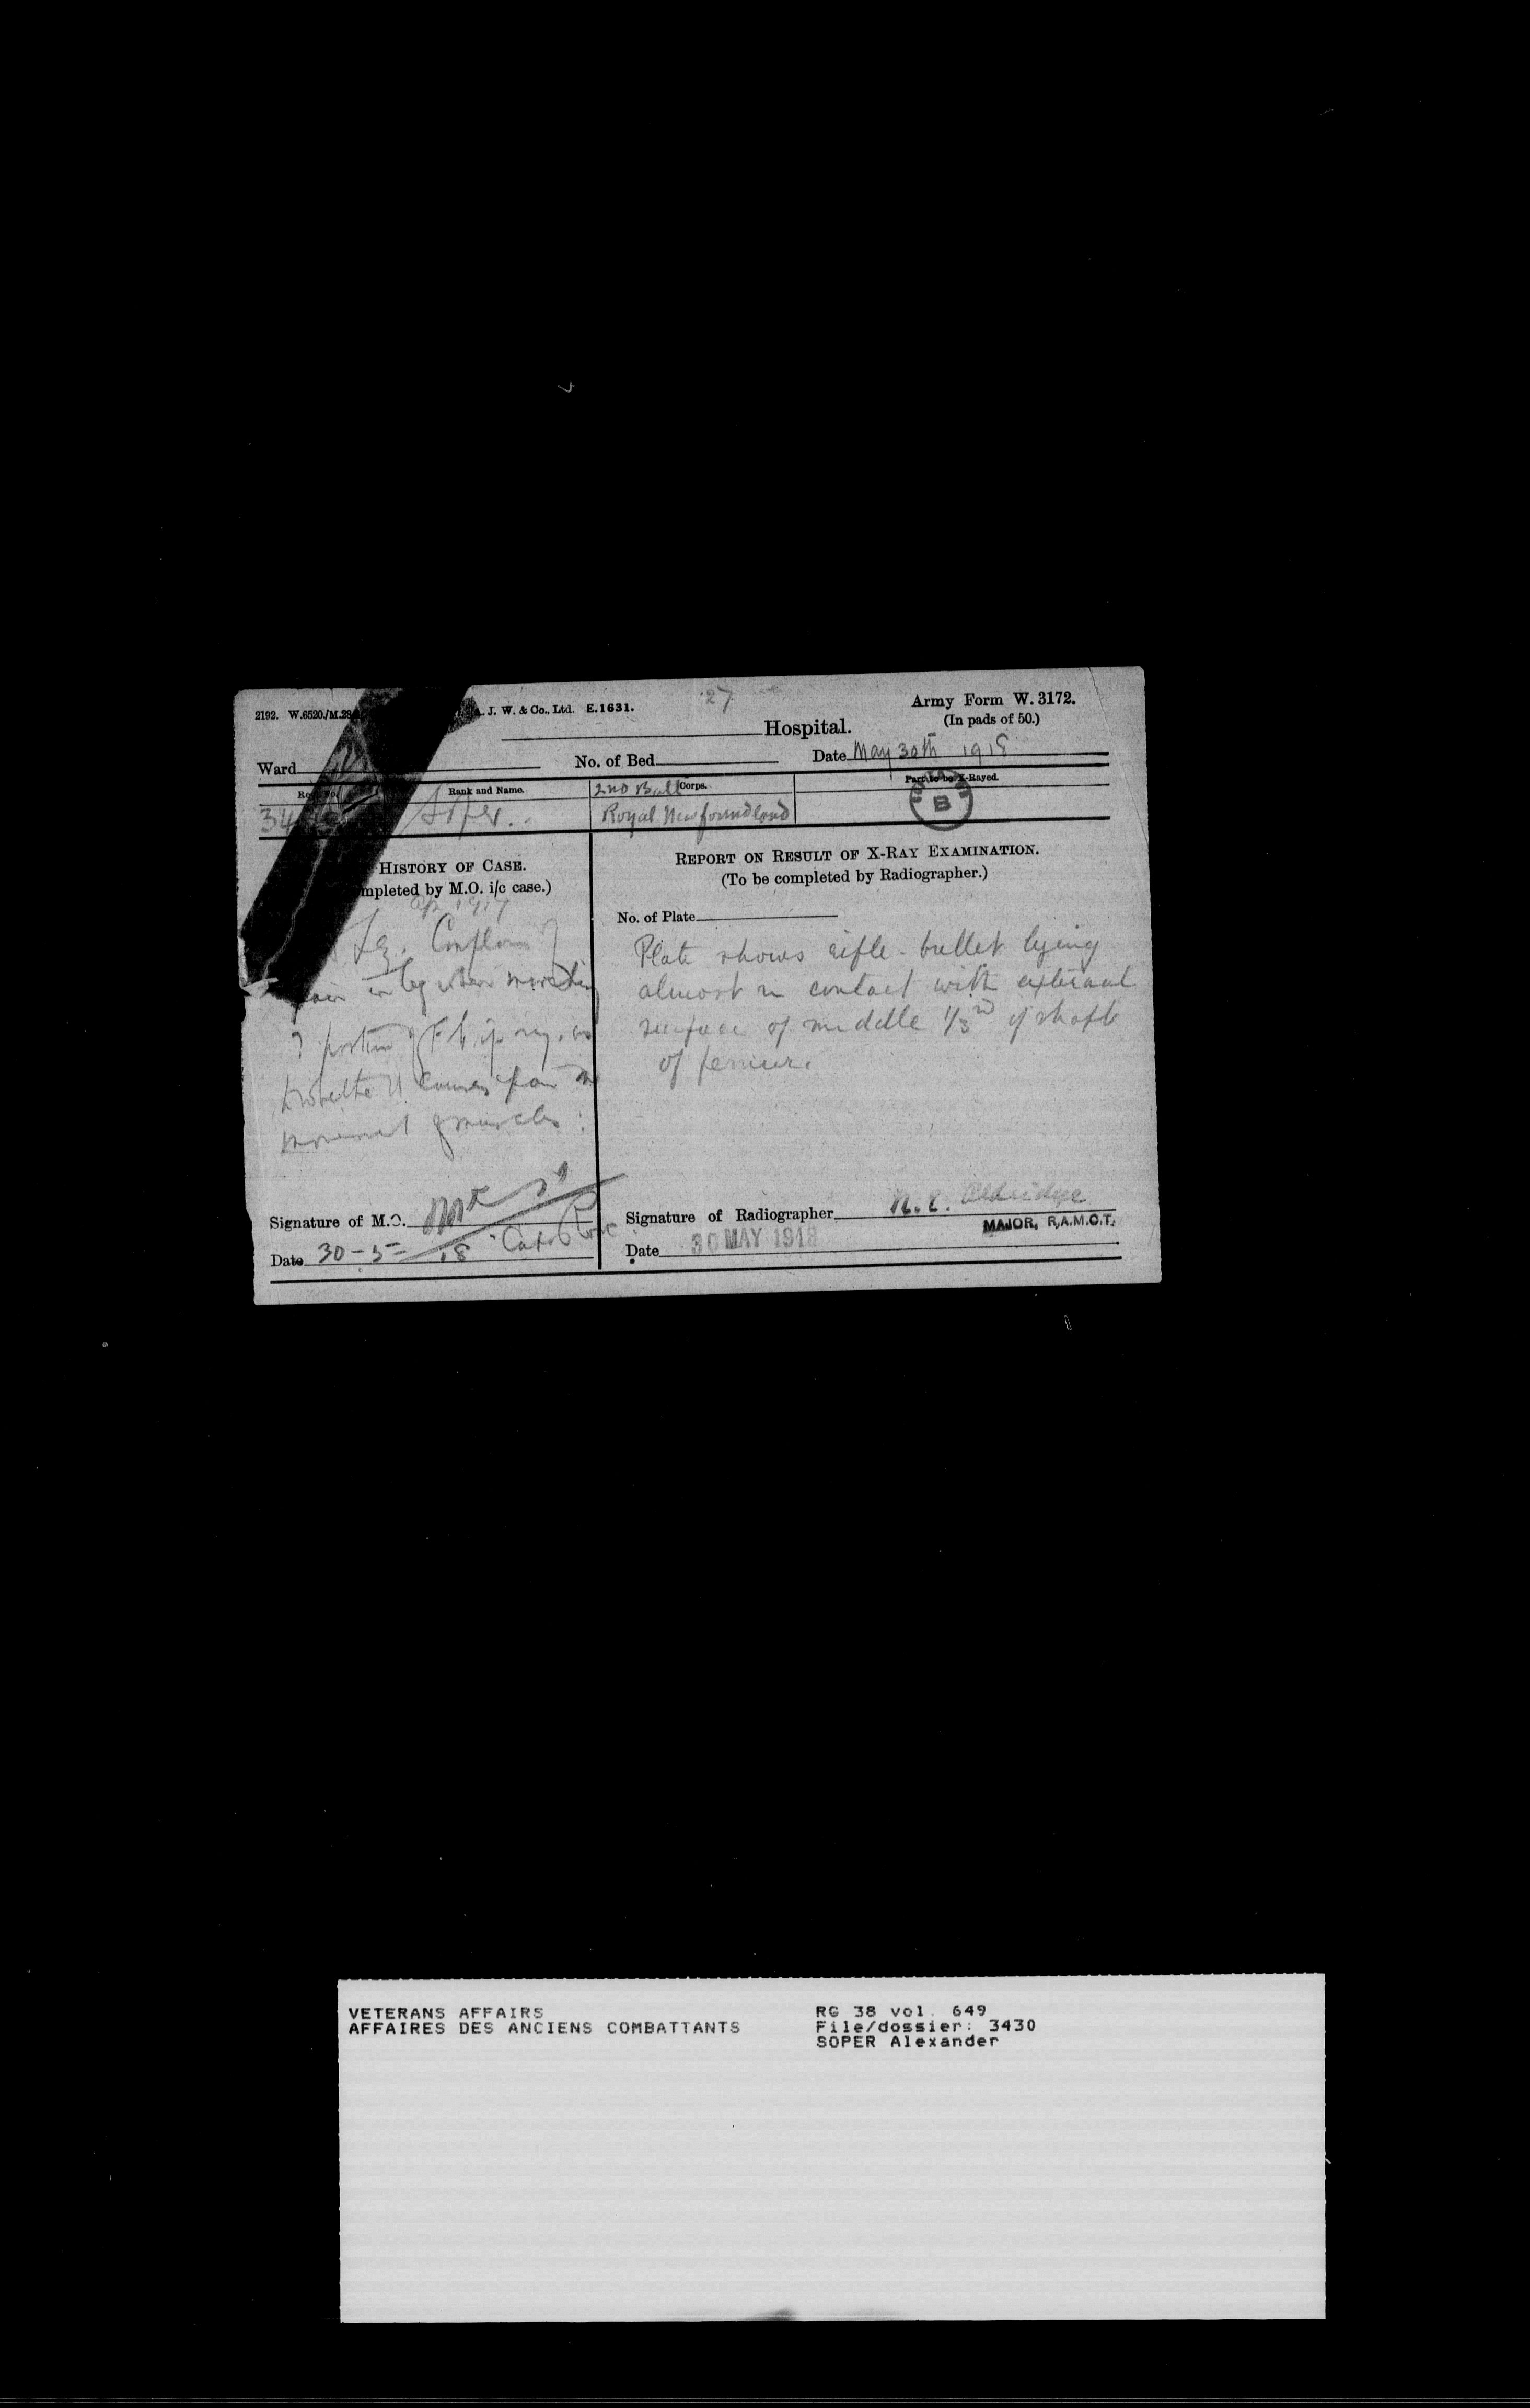 2192. W.6520/M.28 J. W. & Co., Ltd. E.1631.
27
Army Form W. 3172.
(In pads of 50.)
Hospital.
Ward No. of Bed Date May 30th 1918
Regtl. No. Rank and Name. Corps. Part to be X-Rayed.
34 Soper. 2nd Batt
Royal Newfoundland
B
HISTORY OF CASE.
mpleted by M.O. i/c case.)
1917
Leg. Complains of
pain in leg when marching
? portion of
whether it causes pain on
movement of muscles
Signature of M.O.
Date 30-5-18
REPORT ON RESULT OF X-RAY EXAMINATION.
(To be completed by Radiographer.)
No. of Plate
Plate shows rifle-bullet lying
almost in contact with external
surface of middle 1/3rd of shaft
of femur.
Signature of Radiographer N. E. Aldridge
MAJOR, R.A.M.C.T.
Date 30 MAY 1918
VETERANS AFFAIRS
AFFAIRES DES ANCIENS COMBATTANTS
RG 38 vol. 649
File/dossier: 3430
SOPER Alexander